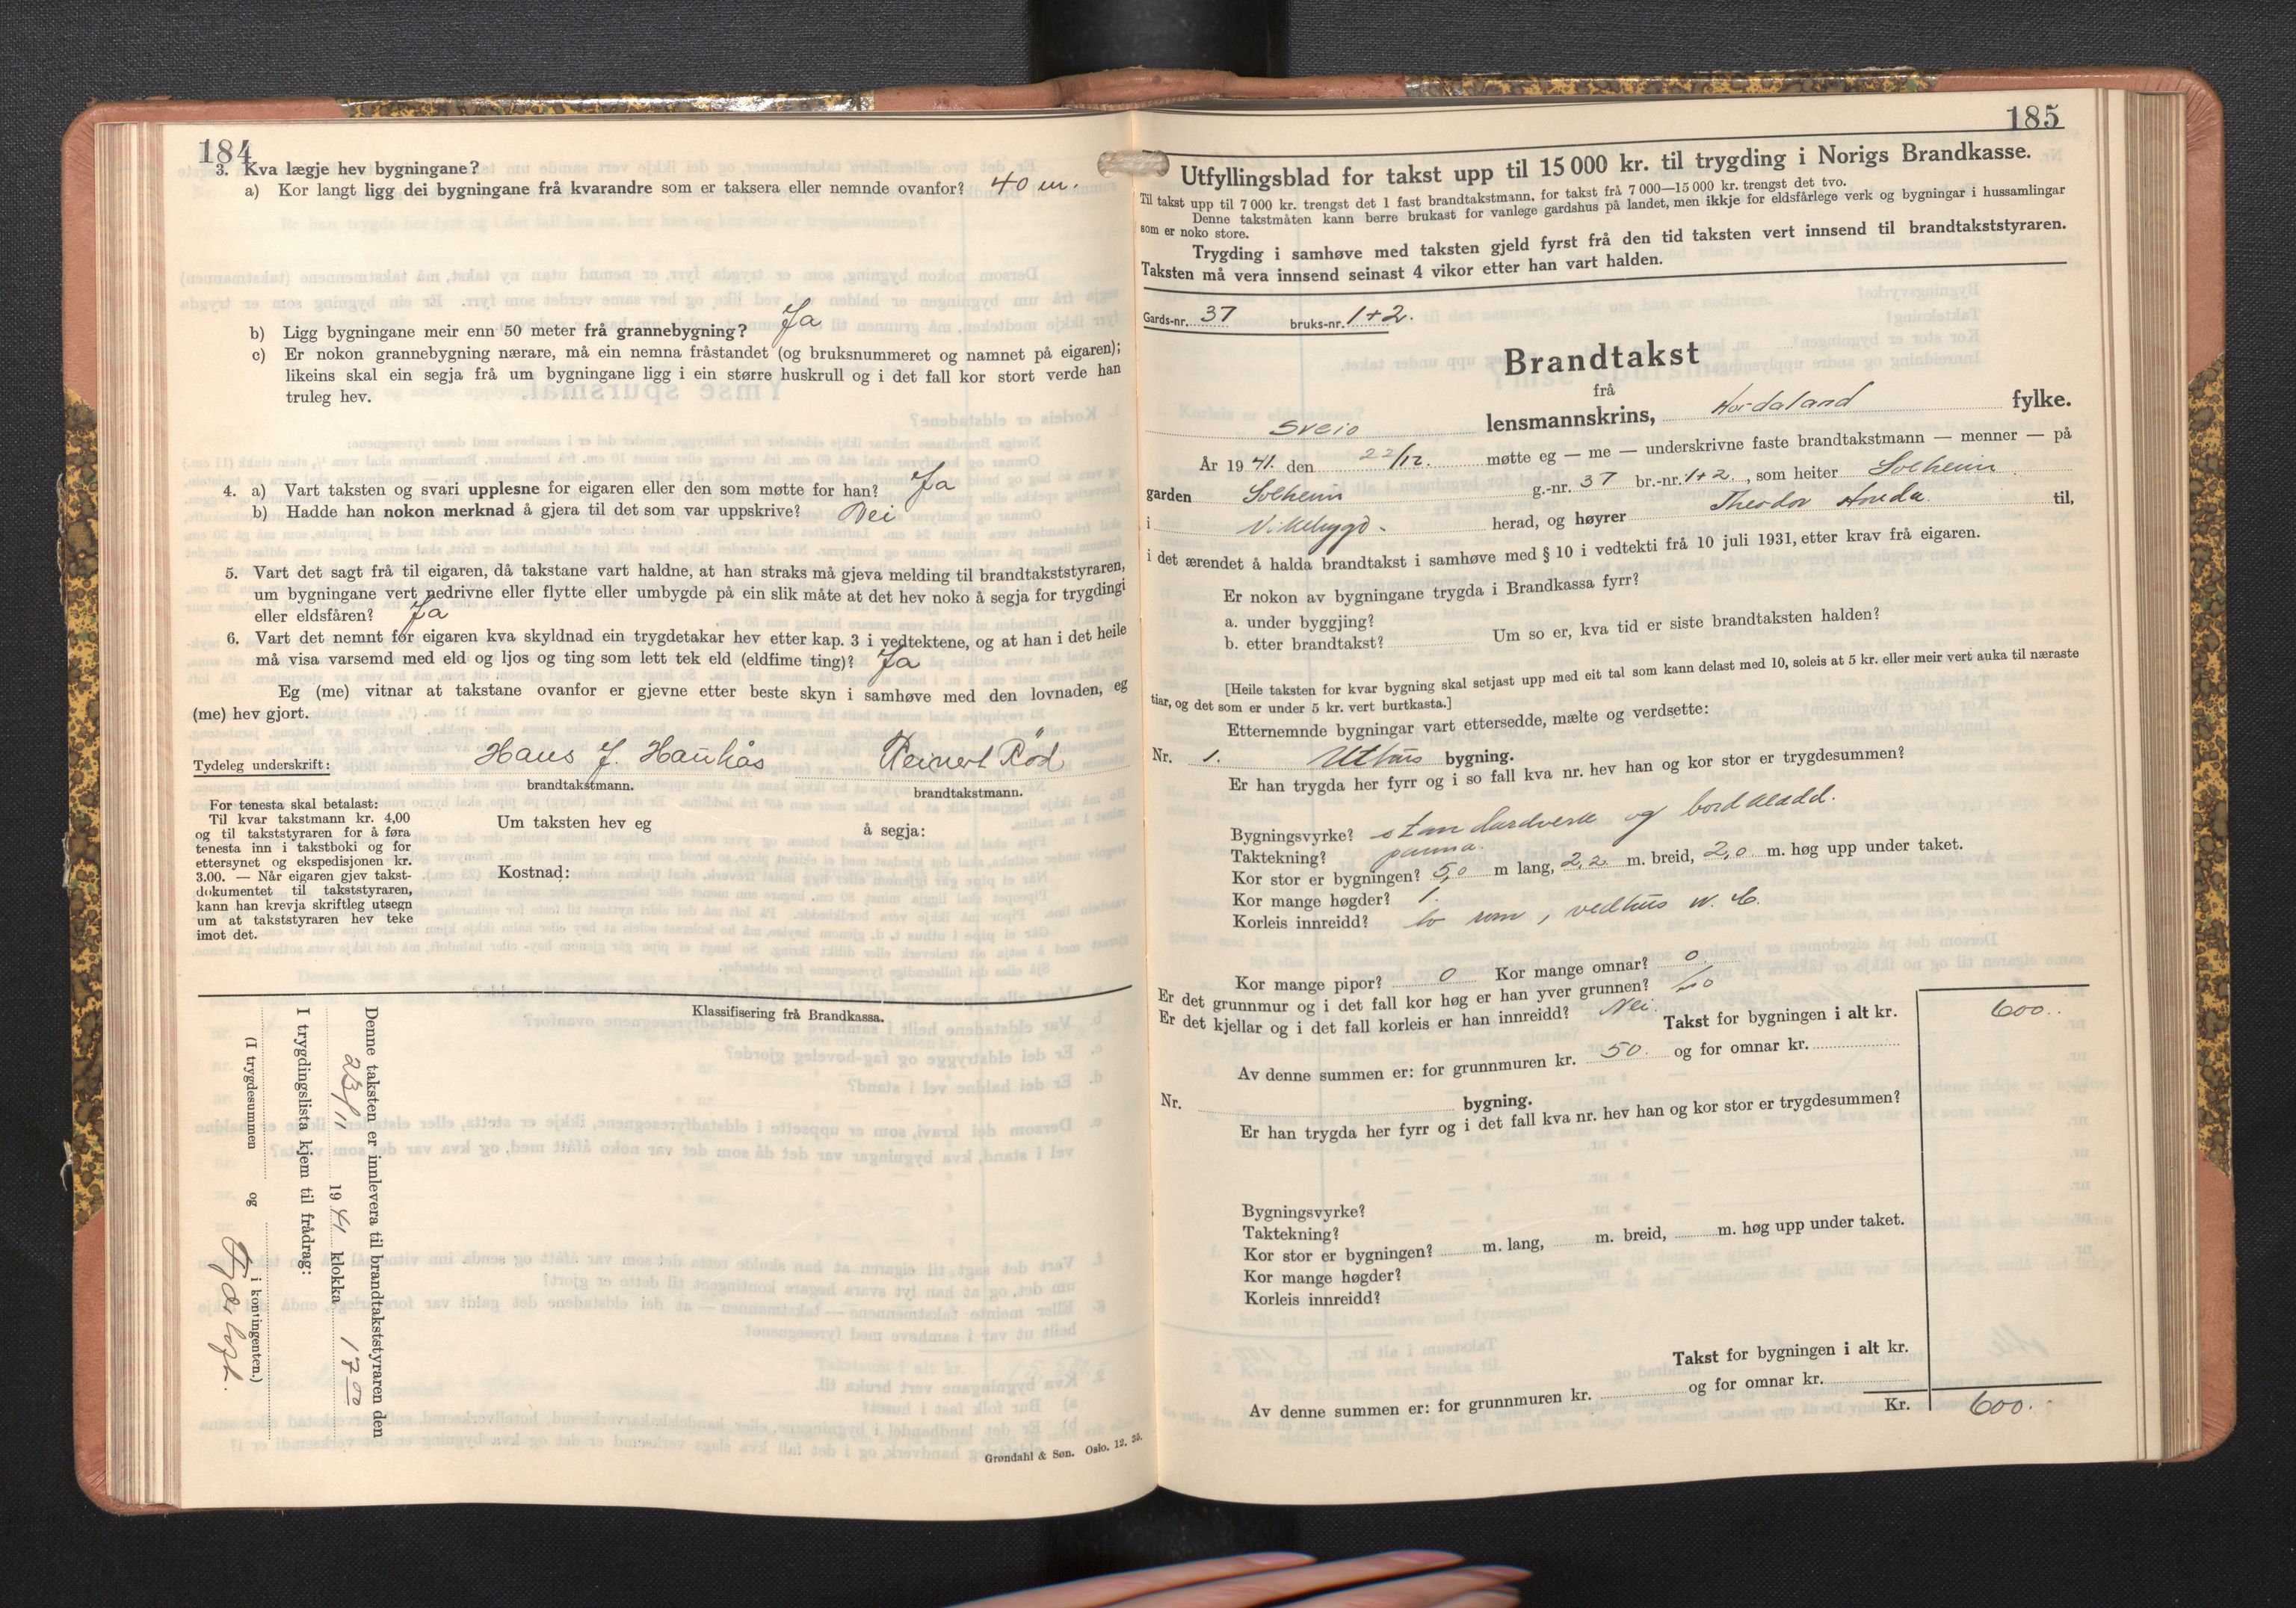 184
3. Kva lægje hev bygningane?
a) Kor langt ligg dei bygningane frå kvarandre som er taksera eller nemnde ovanfor? 40 m.
b) Ligg bygningane meir enn 50 meter frå grannebygning? Ja
c) Er nokon grannebygning nærare, må ein nemna fråstandet (og bruksnummeret og namnet på eigaren);
likeins skal ein segja frå um bygningane ligg i ein større huskrull og i det fall kor stort verde han
truleg hev.
4. a) Vart taksten og svari upplesne for eigaren eller den som møtte for han? Ja
b) Hadde han nokon merknad å gjera til det som var uppskrive? Nei
5. Vart det sagt frå til eigaren, då takstane vart haldne, at han straks må gjeva melding til brandtakststyraren,
um bygningane vert nedrivne eller flytte eller umbygde på ein slik måte at det hev noko å segja for trygdingi
eller eldsfåren? Ja
6. Vart det nemnt for eigaren kva skyldnad ein trygdetakar hev etter kap. 3 i vedtektene, og at han i det heile
må visa varsemd med eld og ljos og ting som lett tek eld (eldfime ting)? Ja
Eg (me) vitnar at takstane ovanfor er gjevne etter beste skyn i samhøve med den lovnaden, eg
(me) hev gjort.
Tydeleg underskrift: Hans J. Hauhås Reinert Röd
brandtakstmann. brandtakstmann.
For tenesta skal betalast:
Til kvar takstmann kr. 4,00
og til takststyraren for å føra
tenesta inn i takstboki og for
ettersynet og ekspedisjonen kr.
3.00. — Når eigaren gjev takst-
dokumentet til takststyraren,
kann han krevja skriftleg utsegn
um at takststyraren hev teke
imot det.
Um taksten hev eg å segja:
Kostnad:
Klassifisering frå Brandkassa.
Denne taksten er innlevera til brandtakststyraren den
23/11 1941 klokka 17 00
I trygdingslista kjem til frådrag:
(I trygdesummen og i kontingenten.)
Grøndahl & Søn. Oslo. 12. 35.
185
Utfyllingsblad for takst upp til 15 000 kr. til trygding i Norigs Brandkasse.
Til takst upp til 7 000 kr. trengst det 1 fast brandtakstmann, for takst frå 7 000—15 000 kr. trengst det tvo.
Denne takstmåten kann berre brukast for vanlege gardshus på landet, men ikkje for eldsfårlege verk og bygningar i hussamlingar
som er noko store.
Trygding i samhøve med taksten gjeld fyrst frå den tid taksten vert innsend til brandtakststyraren.
Taksten må vera innsend seinast 4 vikor etter han vart halden.
Gards-nr. 37 bruks-nr. 1+2.
Brandtakst
frå
Sveio lensmannskrins, Hordaland fylke.
År 1941. den 22/12. møtte eg — me — underskrivne faste brandtakstmann — menner — på
garden Solheim g.-nr. 37 br.-nr. 1+2., som heiter Solheim
i Vikebygd. herad, og høyrer Theodor til,
i det ærendet å halda brandtakst i samhøve med § 10 i vedtekti frå 10 juli 1931, etter krav frå eigaren.
Er nokon av bygningane trygda i Brandkassa fyrr?
a. under byggjing?
b. etter brandtakst? Um so er, kva tid er siste brandtaksten halden?
[Heile taksten for kvar bygning skal setjast upp med eit tal som kann delast med 10, soleis at 5 kr. eller meir vert auka til næraste
tiar, og det som er under 5 kr. vert burtkasta.]
Etternemnde bygningar vart ettersedde, mælte og verdsette:
Nr. 1. Uthus bygning.
Er han trygda her fyrr og i so fall kva nr. hev han og kor stor er trygdesummen?
Bygningsvyrke? standardverk og bordkledd.
Taktekning? panna.
Kor stor er bygningen? 5,0 m lang, 2,2 m. breid, 2,0 m. høg upp under taket.
Kor mange høgder? 1.
Korleis innreidd? to rum, vedhus W. C.
Kor mange pipor? 0 Kor mange omnar? 0.
Er det grunnmur og i det fall kor høg er han yver grunnen?
Er det kjellar og i det fall korleis er han innreidd? Nei.
Takst for bygningen i alt kr. 600..
Av denne summen er: for grunnmuren kr. 50. og for omnar kr.
Nr. bygning.
Er han trygda her fyrr og i det fall kva nr. hev han og kor stor er trygdesummen?
Bygningsvyrke?
Taktekning?
Kor stor er bygningen? m. lang, m. breid, m. høg upp under taket.
Kor mange høgder?
Korleis innreidd?
Takst for bygningen i alt kr.
Av denne summen er: for grunnmuren kr. og for omnar kr.
Kr. 600.-